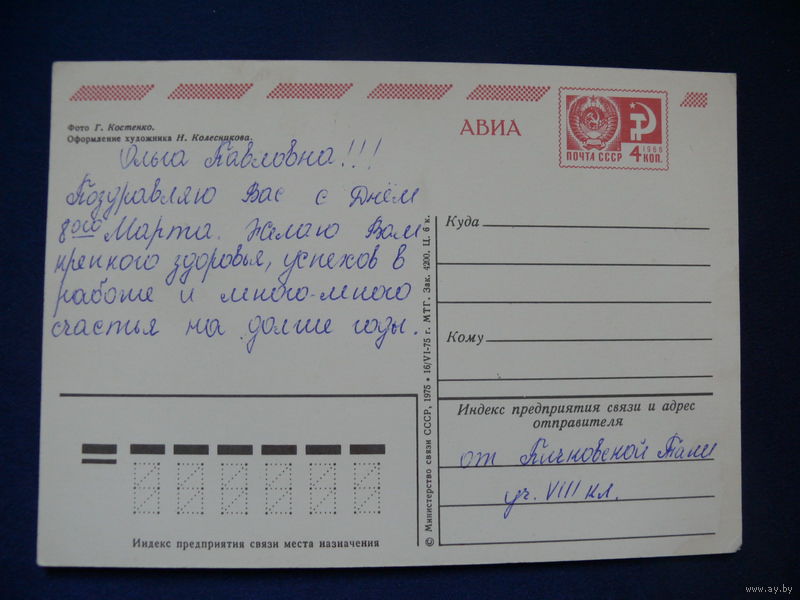 Фото Г. Костенко.
Оформление художника Н. Колесникова.
АВИА
ПОЧТА СССР
1966
4 КОП.
Ольга Павловна!!!
Поздравляю Вас с Днём
8ого Марта. Желаю Вам
крепкого здоровья, успехов в
работе и много-много
счастья на долгие годы.
Куда
Кому
© Министерство связи СССР, 1975 • 16/VI-75 г. МТГ. Зак. 4200. Ц. 6 к.
Индекс предприятия связи и адрес
отправителя
от Гали
уч. VIII кл.
Индекс предприятия связи места назначения
www.ay.by